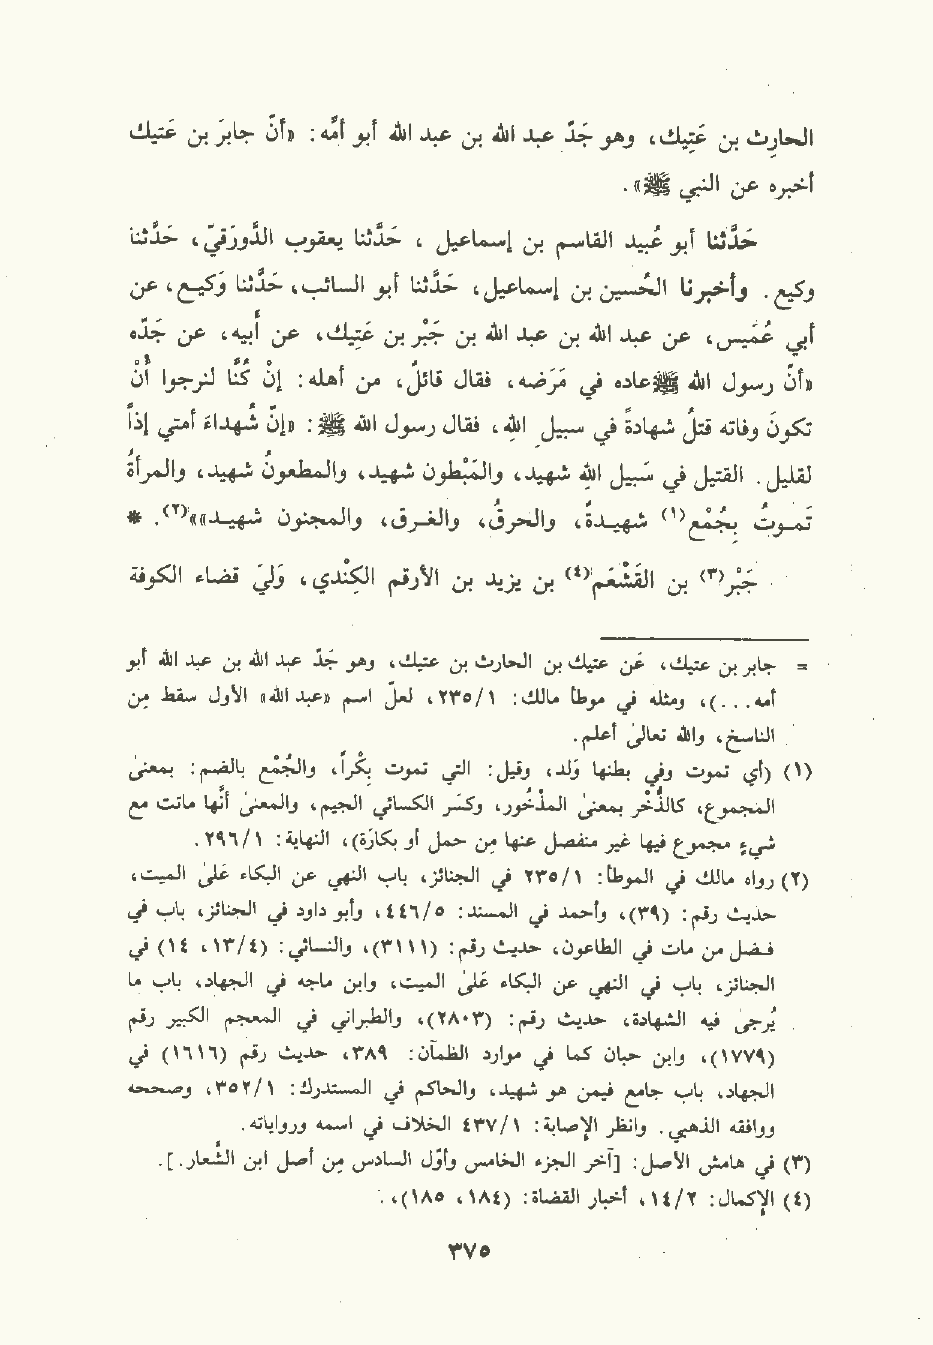 الحارِث بن عَتِيك، وهو جَدّ عبد الله بن عبد الله أبو أمِّه: «أنّ جابرَ بن عَتيك
أخبره عن النبي ﷺ».
حَدَّثنا أبو عُبيد القاسم بن إسماعيل، حَدَّثنا يعقوب الدَّورَقيّ، حَدَّثنا
وكيع. وأخبرنا الحُسين بن إسماعيل، حَدَّثنا أبو السائب، حَدَّثنا وَكيع، عن
أبي عُمَيس، عن عبد الله بن عبد الله بن جَبْر بن عَتِيك، عن أبيه، عن جَدّه
«أنّ رسول الله ﷺ عاده في مَرَضه، فقال قائلٌ، من أهله: إنْ كُنَّا لنرجوا أنْ
تكونَ وفاته قتلُ شهادةً في سبيل اللهِ، فقال رسول الله ﷺ: «إنّ شُهداءَ أمتي إذاً
لقليل. القتيل في سَبيل اللهِ شهيد، والمَبْطون شهيد، والمطعونُ شهيد، والمرأةُ
تَمـوتُ بِجُمْع(١) شهيـدةٌ، والحرقُ، والغـرق، والمجنون شهيـد»»(٢). *
جَبْر(٣) بن القَشْعَم(٤) بن يزيد بن الأرقم الكِنْدي، وَليّ قضاء الكوفة
= جابر بن عتيك، عَن عتيك بن الحارث بن عتيك، وهو جَدّ عبد الله بن عبد الله أبو
أمه...)، ومثله في موطأ مالك: ٢٣٥/١، لعلّ اسم «عبد الله» الأول سقط مِن
الناسخ، والله تعالىٰ أعلم.
(١) (أي تموت وفي بطنها وَلد، وقيل: التي تموت بِكْراً، والجُمْع بالضم: بمعنىٰ
المجموع، كالذُخْر بمعنىٰ المذْخور، وكَسَر الكسائي الجيم، والمعنىٰ أنّها ماتت مع
شيءٍ مجموع فيها غير منفصل عنها مِن حمل أو بكارَة)، النهاية: ٢٩٦/١.
(٢) رواه مالك في الموطأ: ٢٣٥/١ في الجنائز، باب النهي عن البكاء عَلىٰ الميت،
حديث رقم: (٣٩)، وأحمد في المسند: ٤٤٦/٥، وأبو داود في الجنائز، باب في
فضل من مات في الطاعون، حديث رقم: (٣١١١)، والنسائي: (١٣/٤، ١٤) في
الجنائز، باب في النهي عن البكاء عَلىٰ الميت، وابن ماجه في الجهاد، باب ما
يُرجىٰ فيه الشهادة، حديث رقم: (٢٨٠٣)، والطبراني في المعجم الكبير رقم
(١٧٧٩)، وابن حبان كما في موارد الظمآن: ٣٨٩، حديث رقم (١٦١٦) في
الجهاد، باب جامع فيمن هو شهيد، والحاكم في المستدرك: ٣٥٢/١، وصححه
ووافقه الذهبي. وانظر الإصابة: ٤٣٧/١ الخلاف في اسمه ورواياته.
(٣) في هامش الأصل: [آخر الجزء الخامس وأوّل السادس مِن أصل ابن الشّعار.].
(٤) الإكمال: ١٤/٢، أخبار القضاة: (١٨٤، ١٨٥)،.
٣٧٥